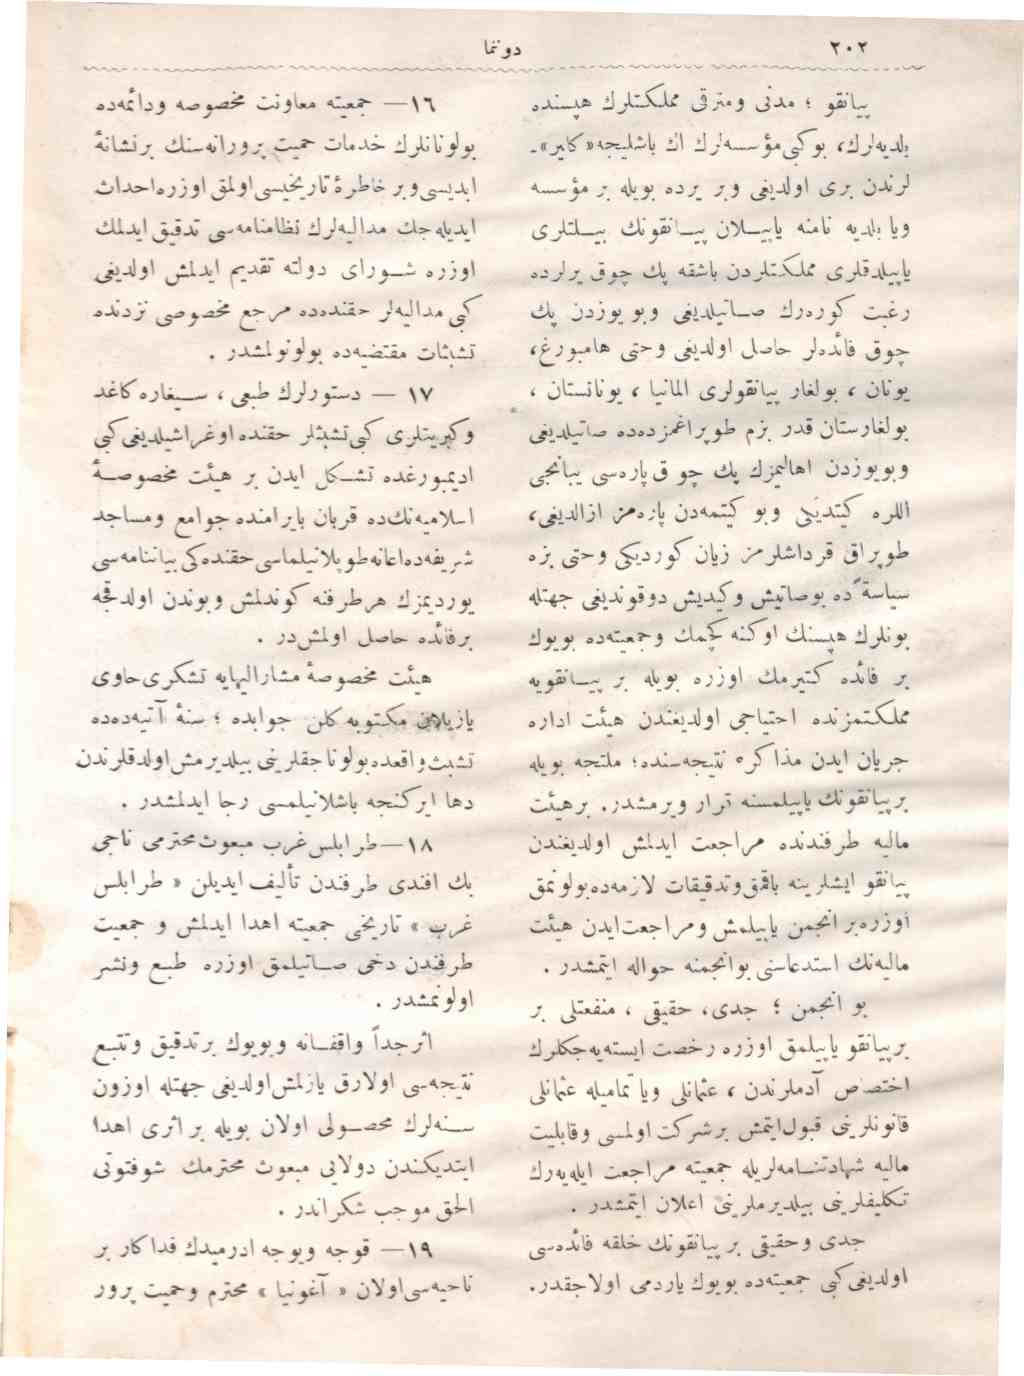 ٢٠٢
دوننما
پیانقو ؛ مدنی ومترقی مملكتلرك هپسنده
بلدیه‌لرك، بو كبی مؤسسه‌لرك اك باشلیجه «كلیر»ـ
لرندن بری اولدیغی وبر یرده بویله بر مؤسسه
ویا بلدیه نامنه یاپیـلان پیـانقونك بیـلتلری
یاپیلدقلری مملكتلردن باشقه پك چوق یرلرده
رغبت كوره‌رك صـاتیلدیغی وبو یوزدن پك
چوق فائده‌لر حاصل اولدیغی وحتی هامبورغ،
یونان ، بولغار پیانقولری المانیا ، یونانستان ،
بولغارستان قدر بزم طوپراغمزده‌ده صاتیلدیغی
وبویوزدن اهالیمزك پك چوق پاره‌سی یبانجی
اللره كیتدیكی وبو كیتمه‌دن پاره‌مز ازالدیغی،
طوپراق قرداشلرمز زیان كوردیكی وحتی بزه
سیاسةً ده بوصاتیش وكیدیش دوقوندیغی جهتله
بونلرك هپسنك اوكنه كچمك وجمعیته‌ده بویوك
بر فائده كتیرمك اوزره بویله بر پیـانقویه
مملكتمزنده احتیاجی اولدیغندن هیئت اداره
جریان ایدن مذاكره نتیجه‌سنده؛ ملتجه بویله
برپیانقونك یاپیلمسنه قرار ویرمشدر. برهیئت
مالیه طرفندنده مراجعت ایدلمش اولدیغندن
پیانقو ایشلرینه باقمق وتدقیقات لازمه‌ده بولونمق
اوزره بر انجمن یاپیلمش ومراجعت ایدن هیئت
مالیه‌نك استدعاسنی بو انجمنه حواله ایتمشدر .
بو انجمن ؛ جدی، حقیقی ، منفعتلی بر
برپیانقو یاپیلمق اوزره رخصت ایسته‌یه‌جكلرك
اختصاص آدملرندن ، عثمانلی ویا تمامیله عثمانلی
قانونلرینی قبول ایتمش برشركت اولمسی وقابلیت
مالیه شهادتنـامه‌لریله جمعیته مراجعت ایله‌یه‌رك
تكلیفلرینی بیلدیرملرینی اعلان ایتمشدر .
جدی وحقیقی بر پیانقونك خلقه فائده‌سی
اولدیغی كبی جمعیته‌ده بویوك یاردمی اولاجقدر.
١٦ — جمعیته معاونت مخصوصه ودائمه‌ده
بولونانلرك خدمات حمیت پرورانه‌سنك برنشانهٔ
ابدیسی وبر خاطرهٔ تاریخیسی اولمق اوزره احداث
ایدیله‌جك مدالیه‌لرك نظامنامه‌سی تدقیق ایدلمك
اوزره شـورای دولته تقدیم ایدلمش اولدیغی
كبی مدالیه‌لر حقنده‌ده مرجع مخصوصی نزدنده
تشبثات مقتضیه‌ده بولونولمشدر .
١٧ — دستورلرك طبعی ، سـیغاره كاغد
وكبریتلری كبی تشبثلر حقنده اوغراشیلدیغی كبی
ادیمبورغده تشـكل ایدن بر هیئت مخصوصـهٔ
اسلامیه‌نك‌ده قربان بایرامنده جوامع ومساجد
شریفه‌ده اعانه طوپلانیلماسی حقنده‌كی بیاننامه‌سی
یوردیمزك هر طرفنه كوندلمش وبوندن اولدقجه
برفائده حاصل اولمش‌در .
هیئت مخصوصهٔ مشارالیهایه تشكری حاوی
یازیلان مكتوبه كلن جوابده ؛ سنهٔ آتیه‌ده‌ده
تشبث واقعده بولوناجقلرینی بیلدیرمش اولدقلرندن
دها ایركنجه باشلانیلمسی رجا ایدلمشدر .
١٨ — طرابلس غرب مبعوث محترمی ناجی
بك افندی طرفندن تألیف ایدیلن « طرابلس
غرب » تاریخی جمعیته اهدا ایدلمش و جمعیت
طرفندن دخی صـاتیلمق اوزره طبـع ونشر
اولونمشدر .
اثر جداً واقفـانه وبویوك بر تدقیق وتتبـع
نتیجه‌سی اولارق یازلمش اولدیغی جهتله اوزون
سـنه‌لرك محصـولی اولان بویله بر اثری اهدا
ایتدیكندن دولایی مبعوث محترمك شو فتوتی
الحق موجب شكراندر .
١٩ — قوجه ویوجه ادرمیدك فداكار بر
ناحیه‌سی اولان « آغونیا » محترم وحمیت پرور